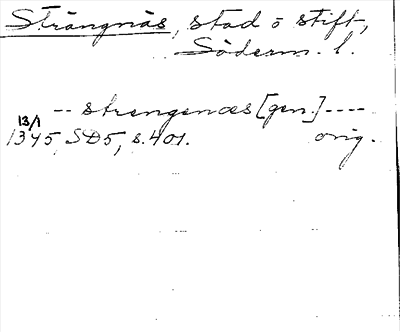 Strängnäs, stad o stift,
Söderm. l.
-- strengenæs [gen.] ----
13/1
1345, SD5, s. 401. orig.